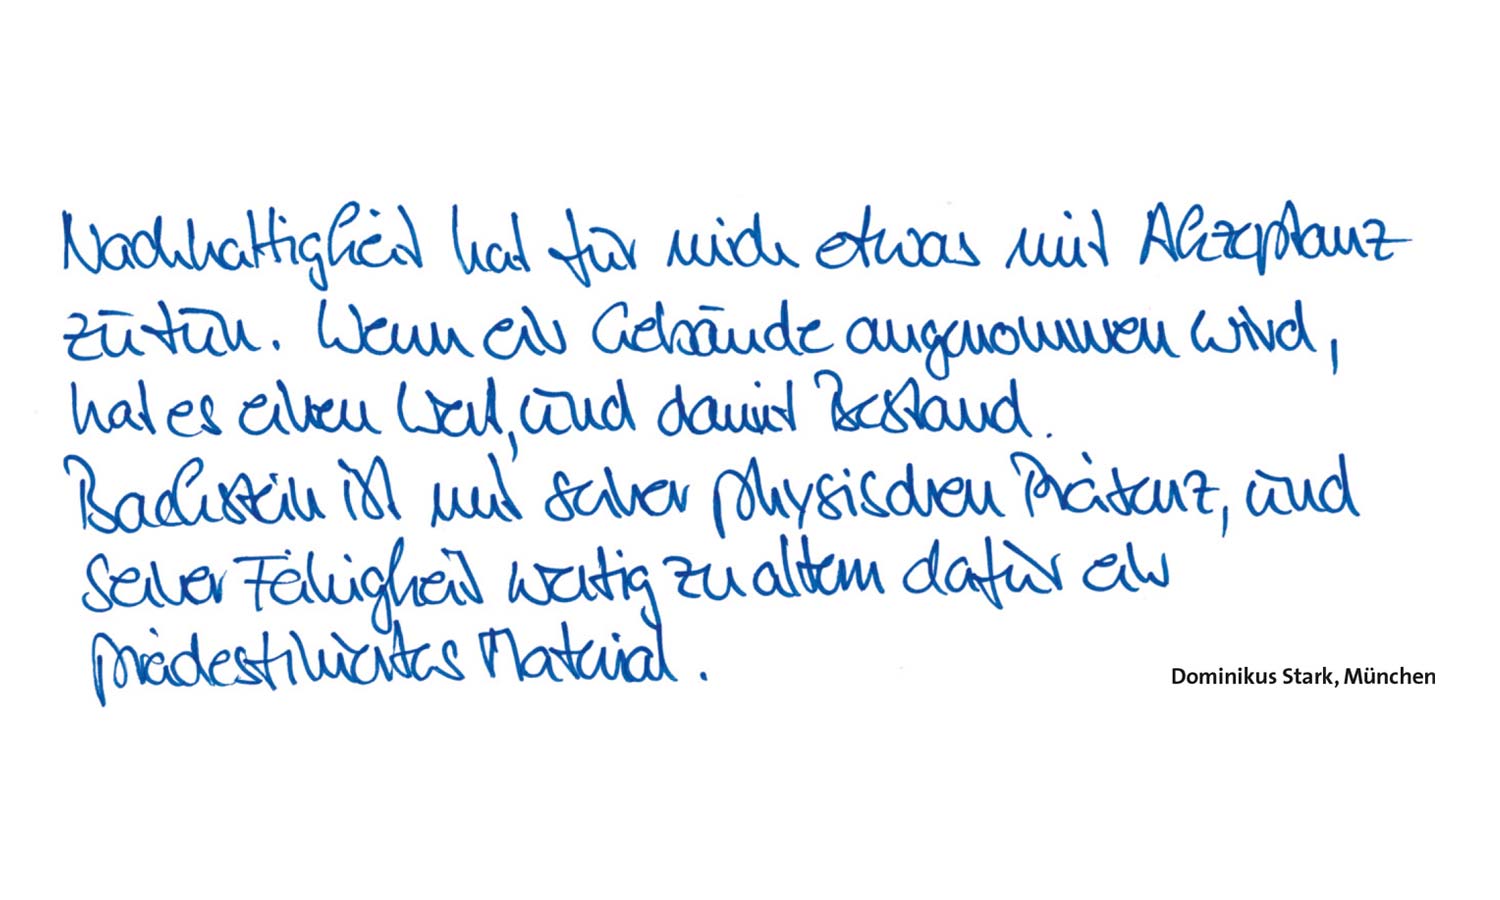 Nachhaltigkeit hat für mich etwas mit Akzeptanz
zu tun. Wenn ein Gebäude angenommen wird,
hat es einen Wert, und damit Bestand.
Backstein ist mit seiner physischen Präsenz, und
seiner Fähigkeit wertig zu altern dafür ein
prädestiniertes Material.
Dominikus Stark, München